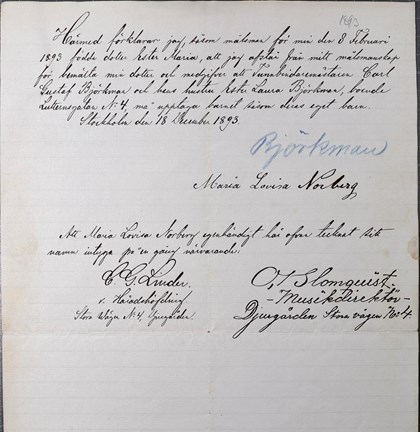 1893
Härmed förklarar jag såsom målsman för min den 8 Februari
1893 födda dotter Ester Maria, att jag afstår från mitt målsmanskap
för bemälta min dotter och medgifver att Tunnbindaremästaren Carl
Gustaf Björkman och hans hustru Ester Laura Björkman, boende
Lutternsgatan N: 4, må upptaga barnet såsom deras eget barn.
Stockholm den 18 December 1893.
Björkman
Maria Lovisa Norberg
Att Maria Lovisa Norberg egenhändigt här ofvan tecknat sitt
namn intyga på en gång närvarande:
C. G. Linder.
v. Häradshöfding
Stora Vägen N: 4, Djurgården
O. Blomquist.
-Musikdirektör-
Djurgården Stora vägen No 4